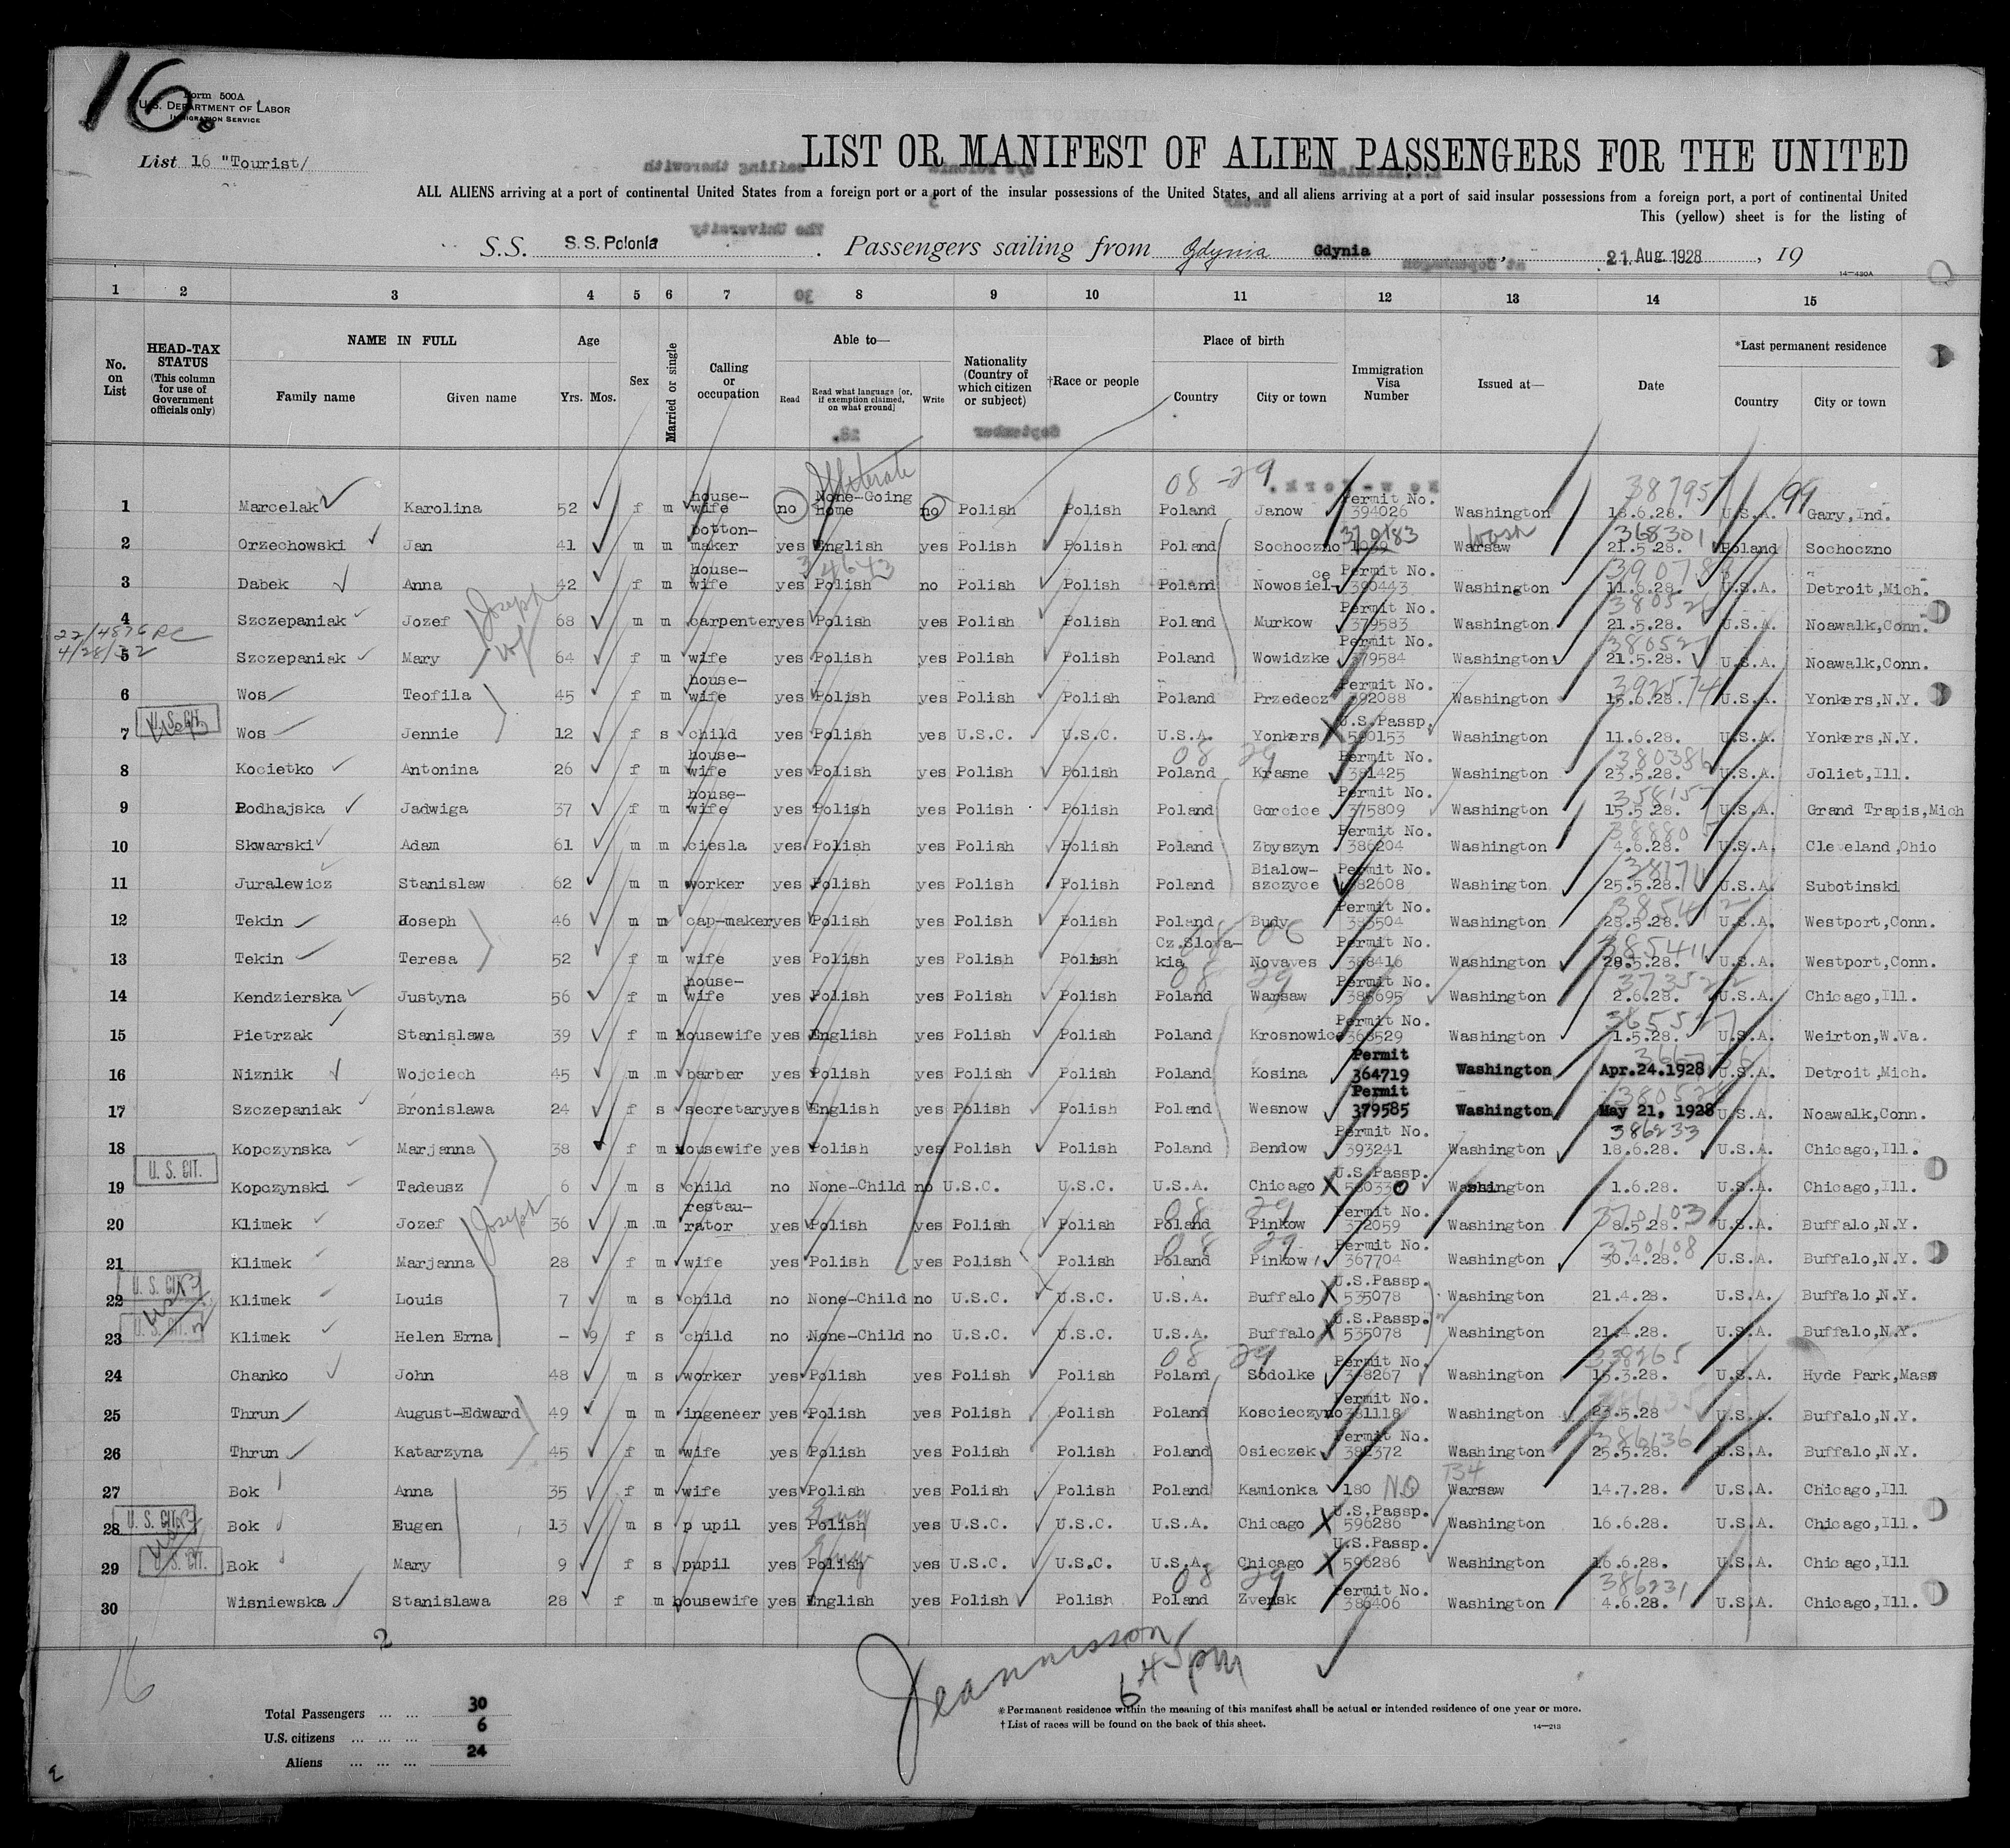 16.
Form 500A
U.S. DEPARTMENT OF LABOR
IMMIGRATION SERVICE
List 16 "Tourist/
LIST OR MANIFEST OF ALIEN PASSENGERS FOR THE UNITED
ALL ALIENS arriving at a port of continental United States from a foreign port or a port of the insular possessions of the United States, and all aliens arriving at a port of said insular possessions from a foreign port, a port of continental United
This (yellow) sheet is for the listing of
S.S. S.S. Polonia. Passengers sailing from Gdynia Gdynia, 21 Aug 1928, 19
14—430A
1 2 3 4 5 6 7 8 9 10 11 12 13 14 15
No. on List
HEAD-TAX STATUS (This column for use of Government officials only)
NAME IN FULL Family name Given name
Age Yrs. Mos.
Sex
Married or single
Calling or occupation
Able to— Read Read what language [or, if exemption claimed, on what ground] Write
Nationality (Country of which citizen or subject)
†Race or people
Place of birth Country City or town
Immigration Visa Number
Issued at—
Date
*Last permanent residence Country City or town
Illiterate 08-29 387957 99
1 Marcelak Karolina 52 f m house-wife no None-Going home no Polish Polish Poland Janow Permit No. 394026 Washington 18.6.28. U.S.A. Gary,Ind.
2 Orzechowski Jan 41 m m botton-maker yes English yes Polish Polish Poland Sochoczno Wash Warsaw 368301 21.5.28. Poland Sochoczno
3 Dabek Anna 42 f m house-wife yes Polish no Polish Polish Poland Nowosiel-ce Permit No. 390443 Washington 11.6.28. U.S.A. Detroit,Mich.
4 Szczepaniak Jozef Joseph 68 m m carpenter yes Polish yes Polish Polish Poland Murkow Permit No. 379583 Washington 21.5.28. U.S.A. Noawalk,Conn.
4/28/32
5 Szczepaniak Mary wf 64 f m wife yes Polish yes Polish Polish Poland Wowidzke Permit No. 379584 Washington 21.5.28. U.S.A. Noawalk,Conn.
6 Wos Teofila 45 f m house-wife yes Polish yes Polish Polish Poland Przedecz Permit No. 392088 Washington 392574 15.6.28. U.S.A. Yonkers,N.Y.
7 U.S. CIT. Wos Jennie 12 f s child yes Polish yes U.S.C. U.S.C. U.S.A. Yonkers U.S.Passp. 590153 Washington 11.6.28. U.S.A. Yonkers,N.Y.
8 Kocietko Antonina 26 f m house-wife yes Polish yes Polish Polish 08 29 Poland Krasne Permit No. 381425 Washington 380386 23.5.28. U.S.A. Joliet,Ill.
9 Podhajska Jadwiga 37 f m house-wife yes Polish yes Polish Polish Poland Gorcice Permit No. 375809 Washington 358157 15.5.28. U.S.A. Grand Trapis,Mich
10 Skwarski Adam 61 m m ciesla yes Polish yes Polish Polish Poland Zbyszyn Permit No. 386204 Washington 4.6.28. U.S.A. Cleveland,Ohio
11 Juralewicz Stanislaw 62 m m worker yes Polish yes Polish Polish Poland Bialow-szczyce Permit No. 382608 Washington 25.5.28. U.S.A. Subotinski
12 Tekin Joseph 46 m m cap-maker yes Polish yes Polish Polish Poland Budy Permit No. 383504 Washington 28.5.28. U.S.A. Westport,Conn.
13 Tekin Teresa 52 f m wife yes Polish yes Polish Polish Cz.Slova-kia Novaves Permit No. 388416 Washington 385411 28.5.28. U.S.A. Westport,Conn.
14 Kendzierska Justyna 56 f m house-wife yes Polish yes Polish Polish 08 29 Poland Warsaw Permit No. 385695 Washington 2.6.28. U.S.A. Chicago,Ill.
15 Pietrzak Stanislawa 39 f m housewife yes English yes Polish Polish Poland Krosnowice Permit No. 368529 Washington 365527 1.5.28. U.S.A. Weirton,W.Va.
16 Niznik Wojciech 45 m m barber yes Polish yes Polish Polish Poland Kosina Permit 364719 Washington Apr.24.1928 U.S.A. Detroit,Mich.
17 Szczepaniak Bronislawa 24 f s secretary yes English yes Polish Polish Poland Wesnow Permit 379585 Washington May 21, 1928 U.S.A. Noawalk,Conn.
18 Kopczynska Marjanna 38 f m housewife yes Polish yes Polish Polish Poland Bendow Permit No. 393241 Washington 386233 18.6.28. U.S.A. Chicago,Ill.
19 U. S. CIT. Kopczynski Tadeusz 6 m s child no None-Child no U.S.C. U.S.C. U.S.A. Chicago U.S.Passp. 580330 Washington 1.6.28. U.S.A. Chicago,Ill.
20 Klimek Jozef Joseph 36 m m restau-rator yes Polish yes Polish Polish 08 29 Poland Pinkow Permit No. 372059 Washington 370103 8.5.28. U.S.A. Buffalo,N.Y.
21 Klimek Marjanna 28 f m wife yes Polish yes Polish Polish 08 29 Poland Pinkow Permit No. 367704 Washington 370108 30.4.28. U.S.A. Buffalo,N.Y.
22 U. S. CIT. Klimek Louis 7 m s child no None-Child no U.S.C. U.S.C. U.S.A. Buffalo U.S.Passp. 535078 Washington 21.4.28. U.S.A. Buffalo,N.Y.
23 U. S. CIT. Klimek Helen Erna - 9 f s child no None-Child no U.S.C. U.S.C. U.S.A. Buffalo U.S.Passp. 535078 Washington 21.4.28. U.S.A. Buffalo,N.Y.
24 Chanko John 48 m s worker yes Polish yes Polish Polish 08 29 Poland Sodolke Permit No. 348267 Washington 338265 15.3.28. U.S.A. Hyde Park,Mass
25 Thrun August-Edward 49 m m ingeneer yes Polish yes Polish Polish Poland Koscieczyno Permit No. 381118 Washington 23.5.28 U.S.A. Buffalo,N.Y.
26 Thrun Katarzyna 45 f m wife yes Polish yes Polish Polish Poland Osieczek Permit No. 382372 Washington 386136 25.5.28. U.S.A. Buffalo,N.Y.
27 Bok Anna 35 f m wife yes Polish yes Polish Polish Poland Kamionka 180 NQ Warsaw 14.7.28. U.S.A. Chicago,Ill
28 U. S. CIT. Bok Eugen 13 m s pupil yes Polish yes U.S.C. U.S.C. U.S.A. Chicago U.S.Passp. 596286 Washington 16.6.28. U.S.A. Chicago,Ill.
29 U. S. CIT. Bok Mary 9 f s pupil yes Polish yes U.S.C. U.S.C. U.S.A. Chicago U.S.Passp. 596286 Washington 16.6.28. U.S.A. Chicago,Ill
30 Wisniewska Stanislawa 28 f m housewife yes English yes Polish Polish 08 29 Poland Zvensk Permit No. 386406 Washington 386231 4.6.28. U.S.A. Chicago,Ill.
2
16
Jeannisson 6 45 pm
Total Passengers ... ... 30
U.S. citizens ... ... ... 6
Aliens ... ... ... 24
*Permanent residence within the meaning of this manifest shall be actual or intended residence of one year or more.
†List of races will be found on the back of this sheet.
14—213